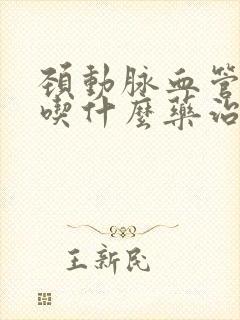 頚動脉血管
喫什麼藥治
王新民